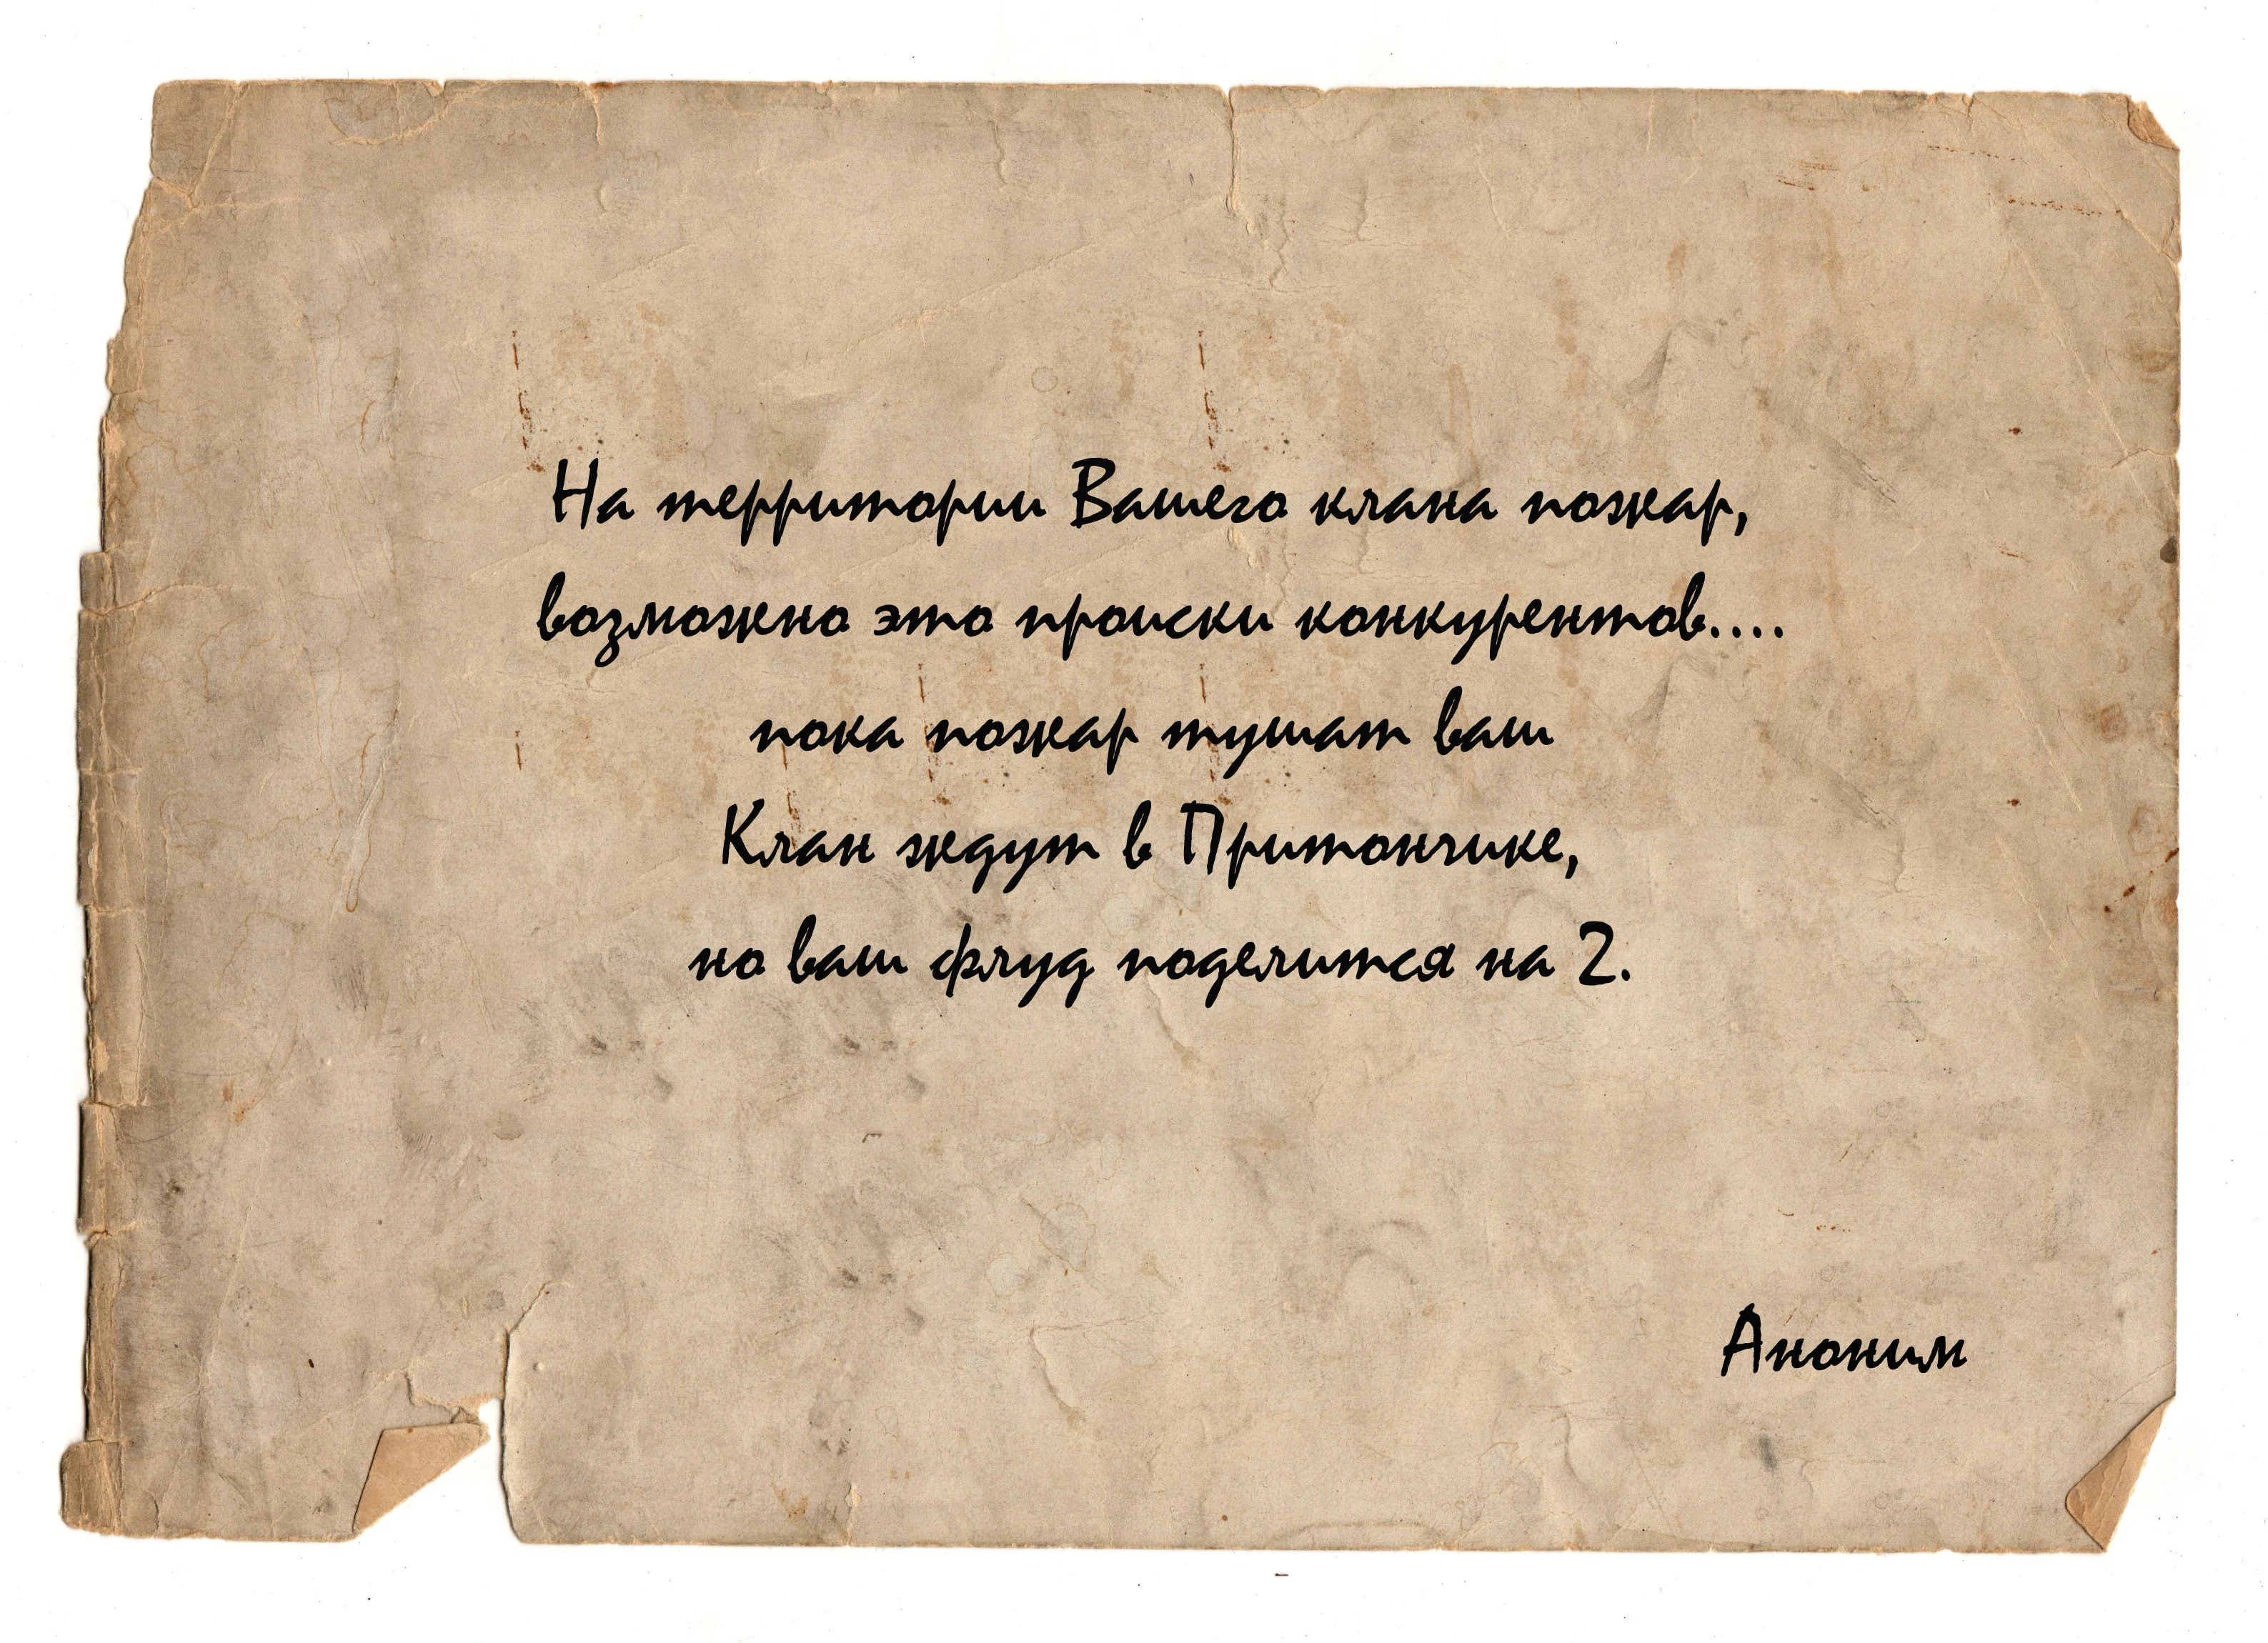 На территории Вашего клана пожар,
возможно это происки конкурентов....
пока пожар тушат ваш
Клан ждут в Притончике,
но ваш флуд поделится на 2.
Аноним